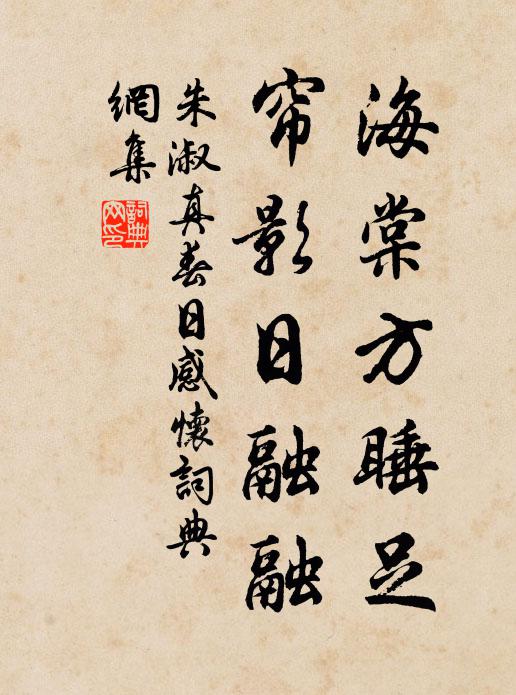 海棠方睡足
帘影日融融
朱淑真春日感懷詞典
網集
詞典
网印